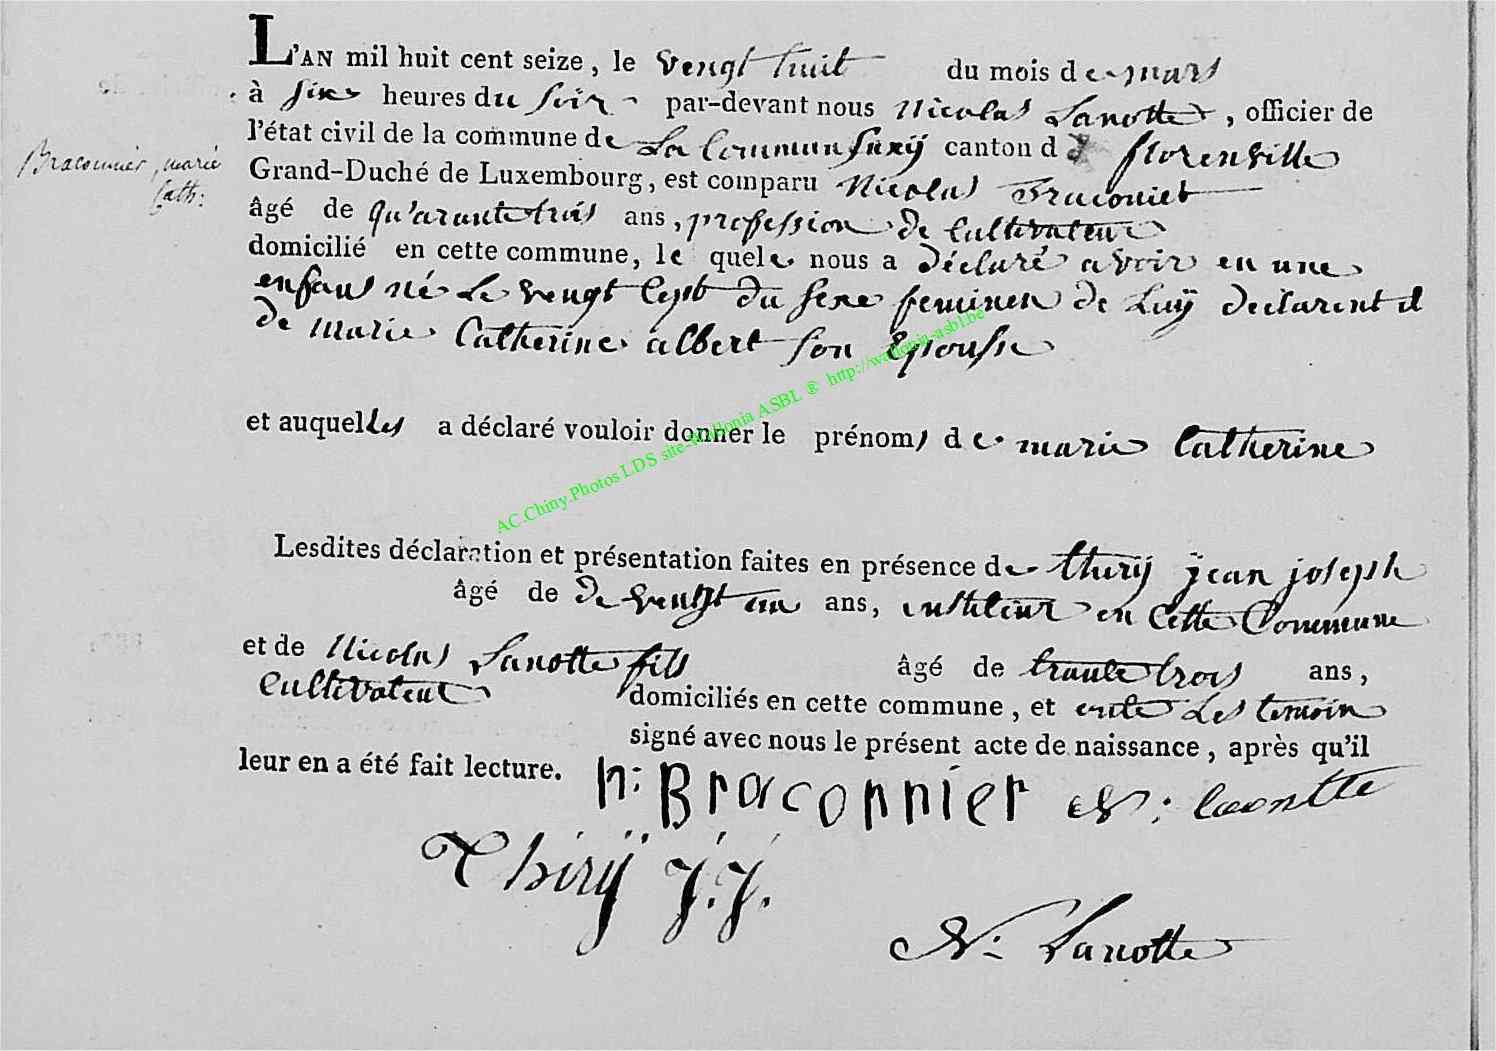 L'AN mil huit cent seize, le vengt huit du mois de mars
à six heures du soir par-devant nous Nicolas Lanotte, officier de
l'état civil de la commune de La Commun Suxÿ canton d florenville
Braconnier, marie
Cath:
Grand-Duché de Luxembourg, est comparu Nicolas Braconier
âgé de qu'arante trois ans, profession de Cultivateur
domicilié en cette commune, le quele nous a déclaré avoir en une
enfans né Le vengt Sept du sexe feminen de Luÿ declarent et
de marie Catherine albert son Epouse
et auquelles a déclaré vouloir donner le prénoms de marie Catherine
Lesdites déclaration et présentation faites en présence de thirÿ jean joseph
âgé de de vengt un ans, institeur en Cette Commune
et de Nicolas Lanotte fils âgé de trante trois ans,
Cultivateur domiciliés en cette commune, et Les temoin
signé avec nous le présent acte de naissance, après qu'il
leur en a été fait lecture. n: Braconnier N: Lanotte
Thirÿ J.J.
N: Lanotte
AC.Chiny.Photos LDS site-Wallonia ASBL ® http://wallonia-asbl.be